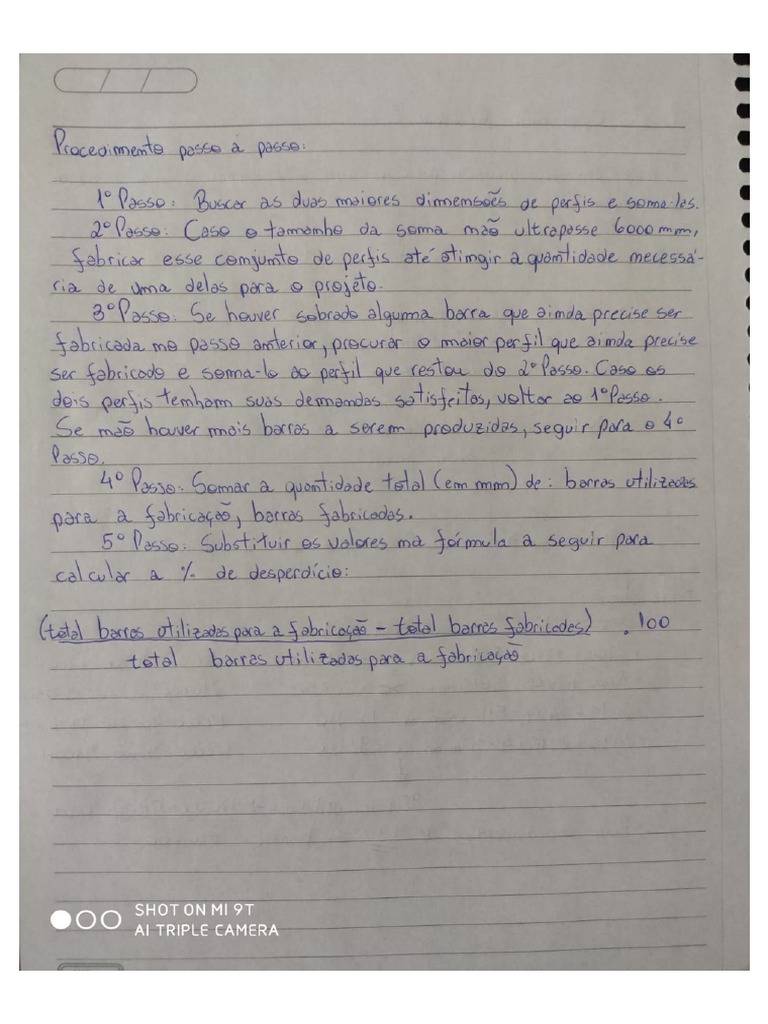 Procedimento passo a passo:
1º Passo: Buscar as duas maiores dimensões de perfis e soma-las.
2º Passo: Caso o tamanho da soma não ultrapasse 6000mm,
fabricar esse conjunto de perfis até atingir a quantidade necessá-
ria de uma delas para o projeto.
3º Passo: Se houver sobrado alguma barra que ainda precise ser
fabricada no passo anterior, procurar o maior perfil que ainda precise
ser fabricado e soma-lo ao perfil que restou do 2º Passo. Caso os
dois perfis tenham suas demandas satisfeitas, voltar ao 1º Passo.
Se não houver mais barras a serem produzidas, seguir para o 4º
Passo.
4º Passo: Somar a quantidade total (em mm) de: barras utilizadas
para a fabricação, barras fabricadas.
5º Passo: Substituir os valores na fórmula a seguir para
calcular a % de desperdício:
(total barras utilizadas para a fabricação - total barras fabricadas) . 100
total barras utilizadas para a fabricação
SHOT ON MI 9T
AI TRIPLE CAMERA